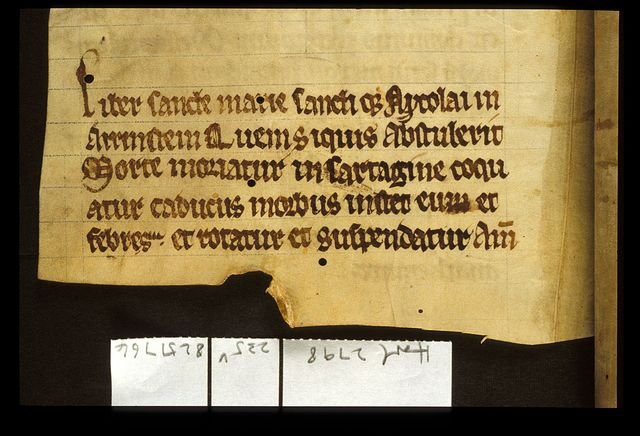 Liber sancte marie sancti qꝫ Nycolai in
Arrinstein Quem siquis Abstulerit
Morte moriatur in sartagine coqu
atur caducus morbus instet eum et
febres et rotatur et suspendatur Am̅
Harl 2798
235v
8251766